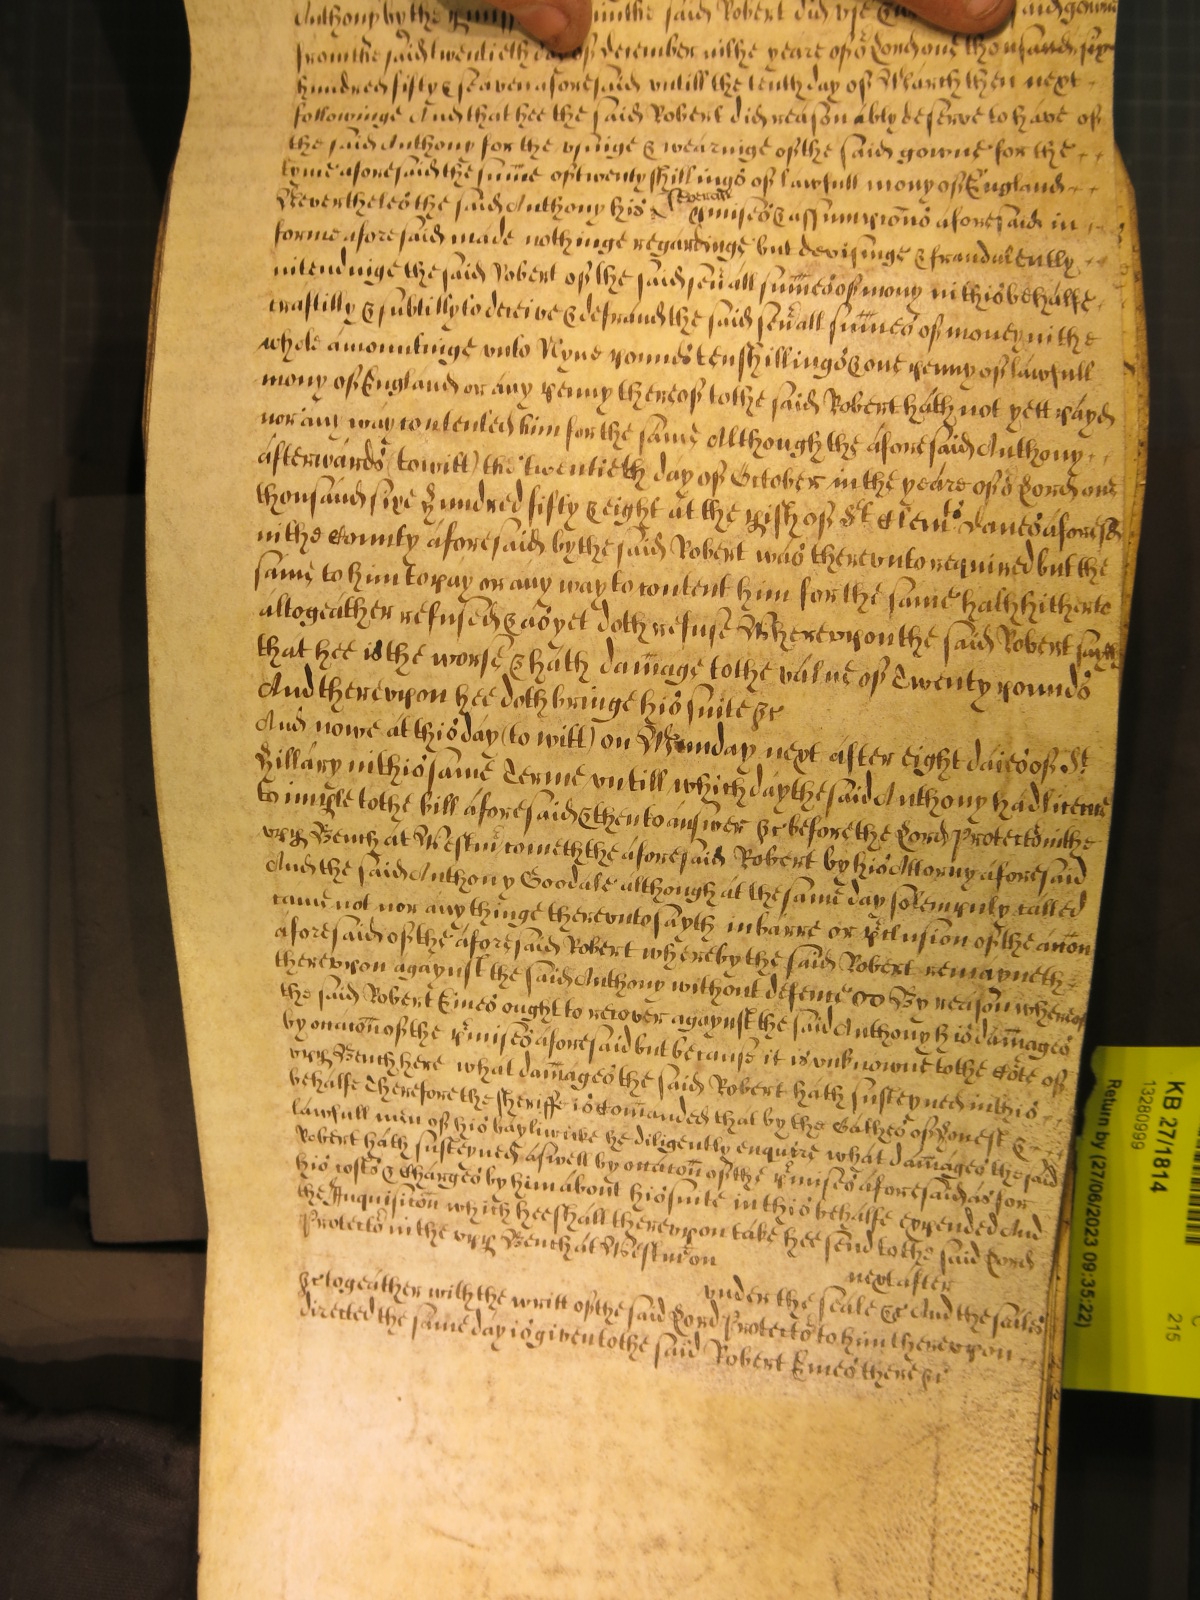 Anthony by the said Robert did use said gowne
from the said twentieth day of December in the yeare of or Lord one thousand six
hundred fifty & seaven aforesaid untill the tenth day of March then next
followinge And that hee the said Robert did reasonably deserve to have of
the said Anthony for the usinge & wearinge of the said gowne for the
tyme aforesaid the sum̄e of twenty shillings of lawfull mony of England
Neverthelẽs the said Anthony his severall p̱misẽs & assumpcons aforesaid in
forme aforesaid made nothinge regardinge but devisinge & fraudulently
intendinge the said Robert of the said sev̄all sum̄es of mony in this behalfe
craftilly & subtilly to deceive & defraud the said sev̄all sum̄es of money in the
whole amountinge unto Nyne pounds ten shillings & one penny of lawfull
mony of England or any penny thereof to the said Robert hath not yett payd
nor any way contented him for the same Although the aforesaid Anthony
afterwards (to witt) the twentieth day of October in the yeare of or Lord one
thousand sixe hundred fifty & eight at the p̱ish of St Clemts Danes aforesd
in the County aforesaid by the said Robert was thereunto required but the
same to him to pay or any way to content him for the same hath hitherto
altogeather refused & as yet doth refuse Whereupon the said Robert sayth
that hee is the worse & hath dam̄age to the value of Twenty pounds
And thereupon hee doth bringe his suite &c
And nowe at this day (to witt) on Munday next after eight daies of St
Hillary in this same Terme untill which day the said Anthony had licence
to imp̱le to the bill aforesaid & then to answer &c before the Lord Protector in the
upp̱ Bench at Westm̄ cometh the aforesaid Robert by his Attorny aforesaid
And the said Anthony Goodale although at the same day solempnly called
came not nor any thinge thereunto sayth in barre or p̱clusion of the accōn
aforesaid of the aforesaid Robert whereby the said Robert remayneth
thereupon agaynst the said Anthony without defence By reason whereof
the said Robert Eines ought to recover agaynst the said Anthony his dam̄ages
by occācon of the p̱misẽs aforesaid but because it is unknowne to the Cōte of
upp̱ Bench here what dam̄ages the said Robert hath susteyned in this
behalfe Therefore the Sheriffe is Com̄anded that by the Oathes of honest &
lawfull men of his bayliwike he diligently enquire what dam̄ages the said
Robert hath susteyned aswell by occācon of the p̱misẽs aforesaid as for
his costs & Charges by him about his suite in this behalfe expended And
the Inquisicōn which hee shall thereupon take hee send to the said Lord
Protector in the upp̱ Bench at Westm̄ on next after
under the seale &c And the seales
&c togeather with the writt of the said Lord Protector to him thereupon
directed the same day is given to the said Robert Eines there &c
KB 27/1814
13280999
Return by (27/06/2023 09:35:22)
215